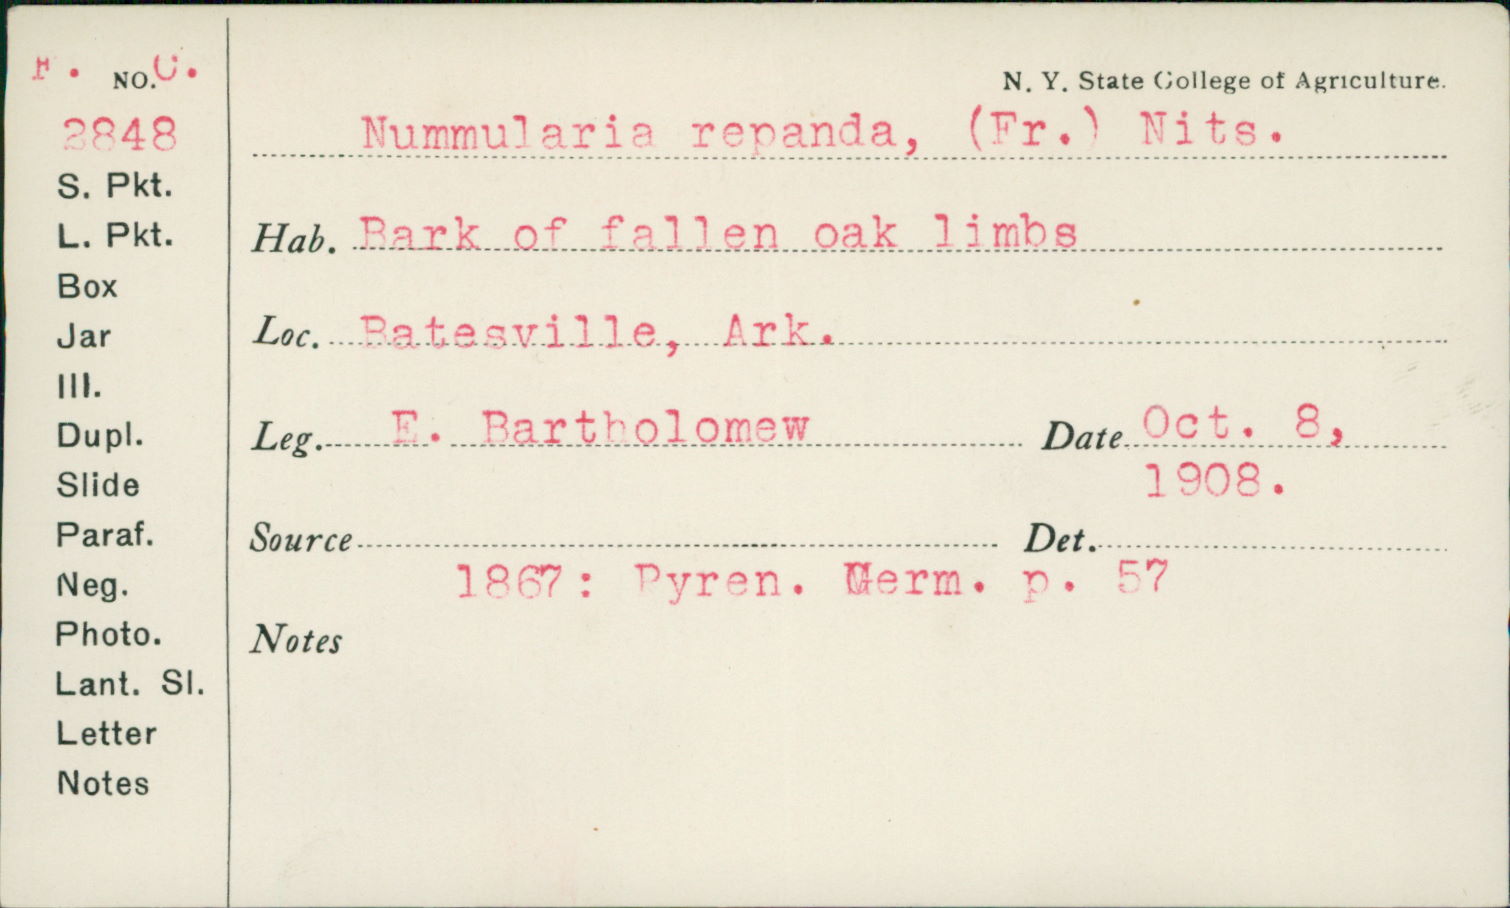 F. NO. C.
N. Y. State College of Agriculture.
2848
Nummularia repanda, (Fr.) Nits.
S. Pkt.
L. Pkt.
Hab. Bark of fallen oak limbs
Box
Jar
Loc. Batesville, Ark.
Ill.
Dupl.
Leg. E. Bartholomew Date Oct. 8,
1908.
Slide
Paraf.
Source Det.
Neg.
1867: Pyren. Germ. p. 57
Photo.
Notes
Lant. Sl.
Letter
Notes